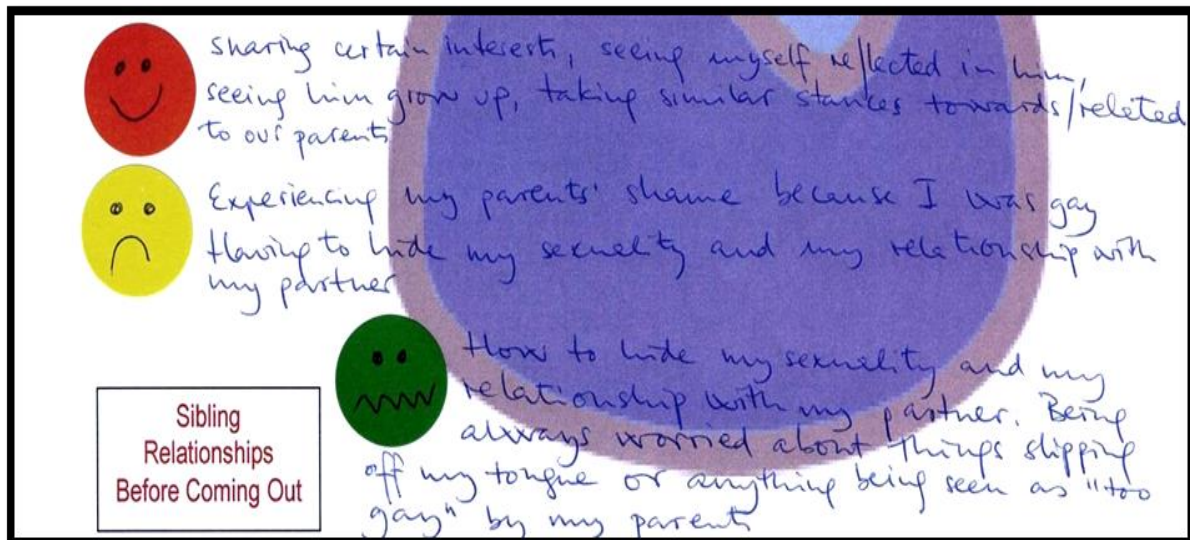 sharing certain interests, seeing myself reflected in him,
seeing him grow up, taking similar stances towards/releted
to our parents
Experiencing my parents' shame because I was gay
Having to hide my sexuality and my relationship with
my partner
How to hide my sexuality and my
relationship with my partner. Being
always worried about things slipping
off my tongue or anything being seen as "too
gay" by my parents
Sibling
Relationships
Before Coming Out